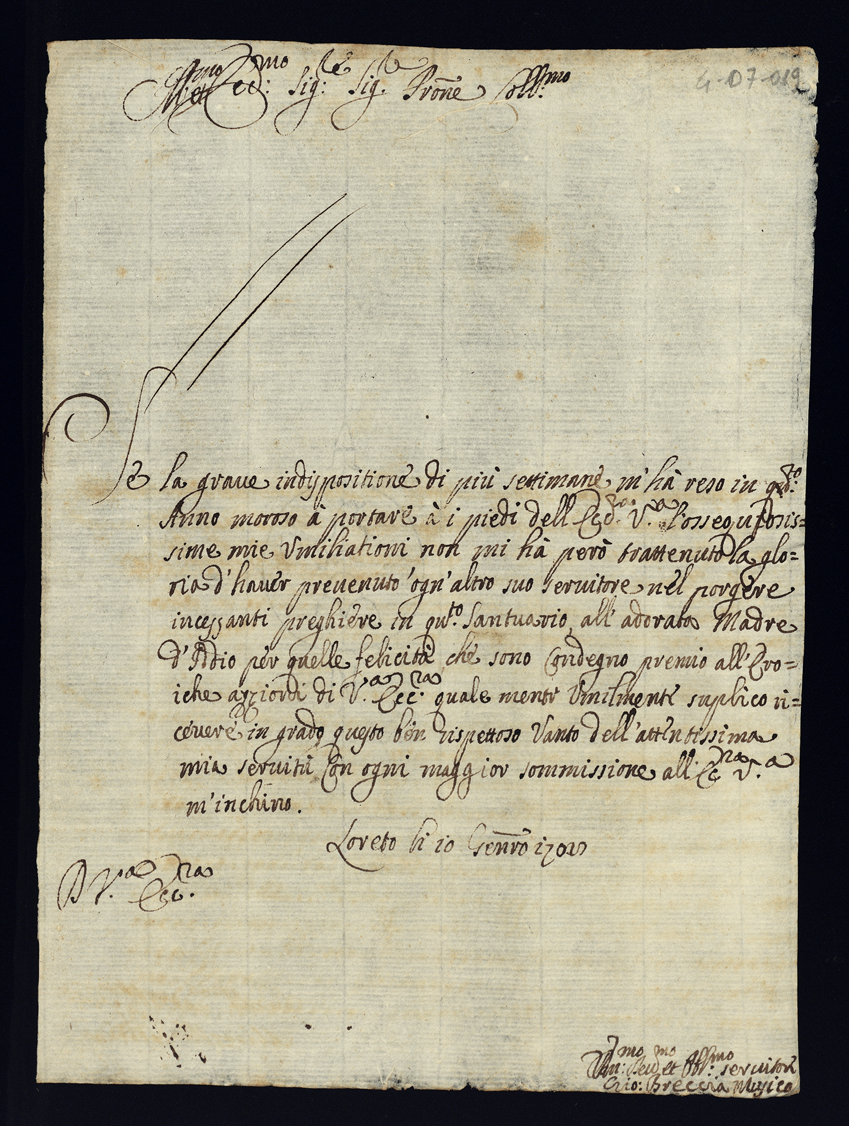 Ill:mo et Ecc:mo Sig:re Sig:re Prōne Coll:mo
G-07-019
Se la graue indispositione di più settimane m'hà reso in q:to
Anno moroso à portare à i piedi dell'Ecc:za V:a l'ossequiosis=
sime mie Vmiliationi non mi hà però trattenuto la glo=
ria d'hauer preuenuto ogn'altro suo seruitore nel porgere
incessanti preghiere in qu:to Santuario all'adorata Madre
d'Iddio per quelle felicità che sono Condegno premio all'Ero=
iche azzioni di V:a Ecc:za quale mente Vmilmente suplico ri=
ceuere in grado questo ben rispettoso Vanto dell'attentissima
mia seruitù Con ogni maggior sommissione all'Ecc:za V:a
m'inchino.
Loreto li 10 Gennro
D V:a Ecc:za
Vm:mo Deu:mo et Obl:mo seruitore
Gio: Breccia Musico